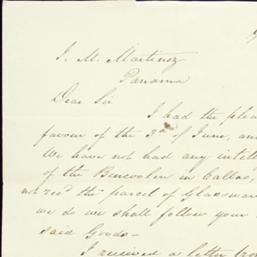 J. M. Martinez
Panama
Dear Sir
I had the plea
favour of the 3rd of June, an
We have not had any intel
of the Bencoolen in Callao,
not recd the parcel of Glassware
we do we shall follow your
said Goods —
I received a letter from